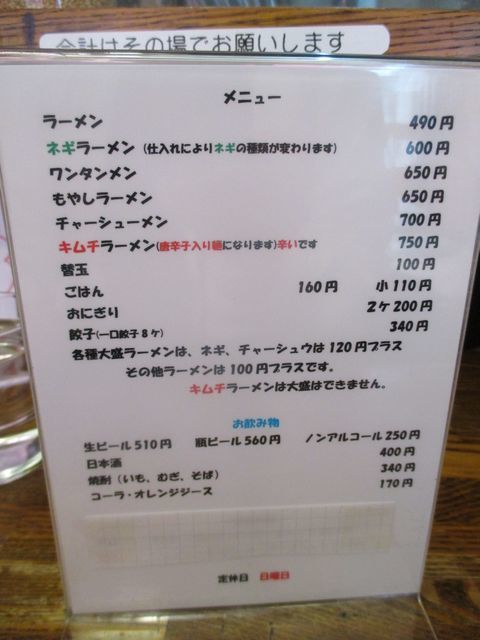 会計はその場でお願いします
メニュー
ラーメン 490円
ネギラーメン (仕入れによりネギの種類が変わります) 600円
ワンタンメン 650円
もやしラーメン 650円
チャーシューメン 700円
キムチラーメン(唐辛子入り麺になります)辛いです 750円
替玉 100円
ごはん 160円 小110円
おにぎり 2ケ200円
餃子(一口餃子8ケ) 340円
各種大盛ラーメンは、ネギ、チャーシュウは120円プラス
その他ラーメンは100円プラスです。
キムチラーメンは大盛はできません。
お飲み物
生ビール510円 瓶ビール560円 ノンアルコール250円
日本酒 400円
焼酎(いも、むぎ、そば) 340円
コーラ・オレンジジース 170円
定休日 日曜日